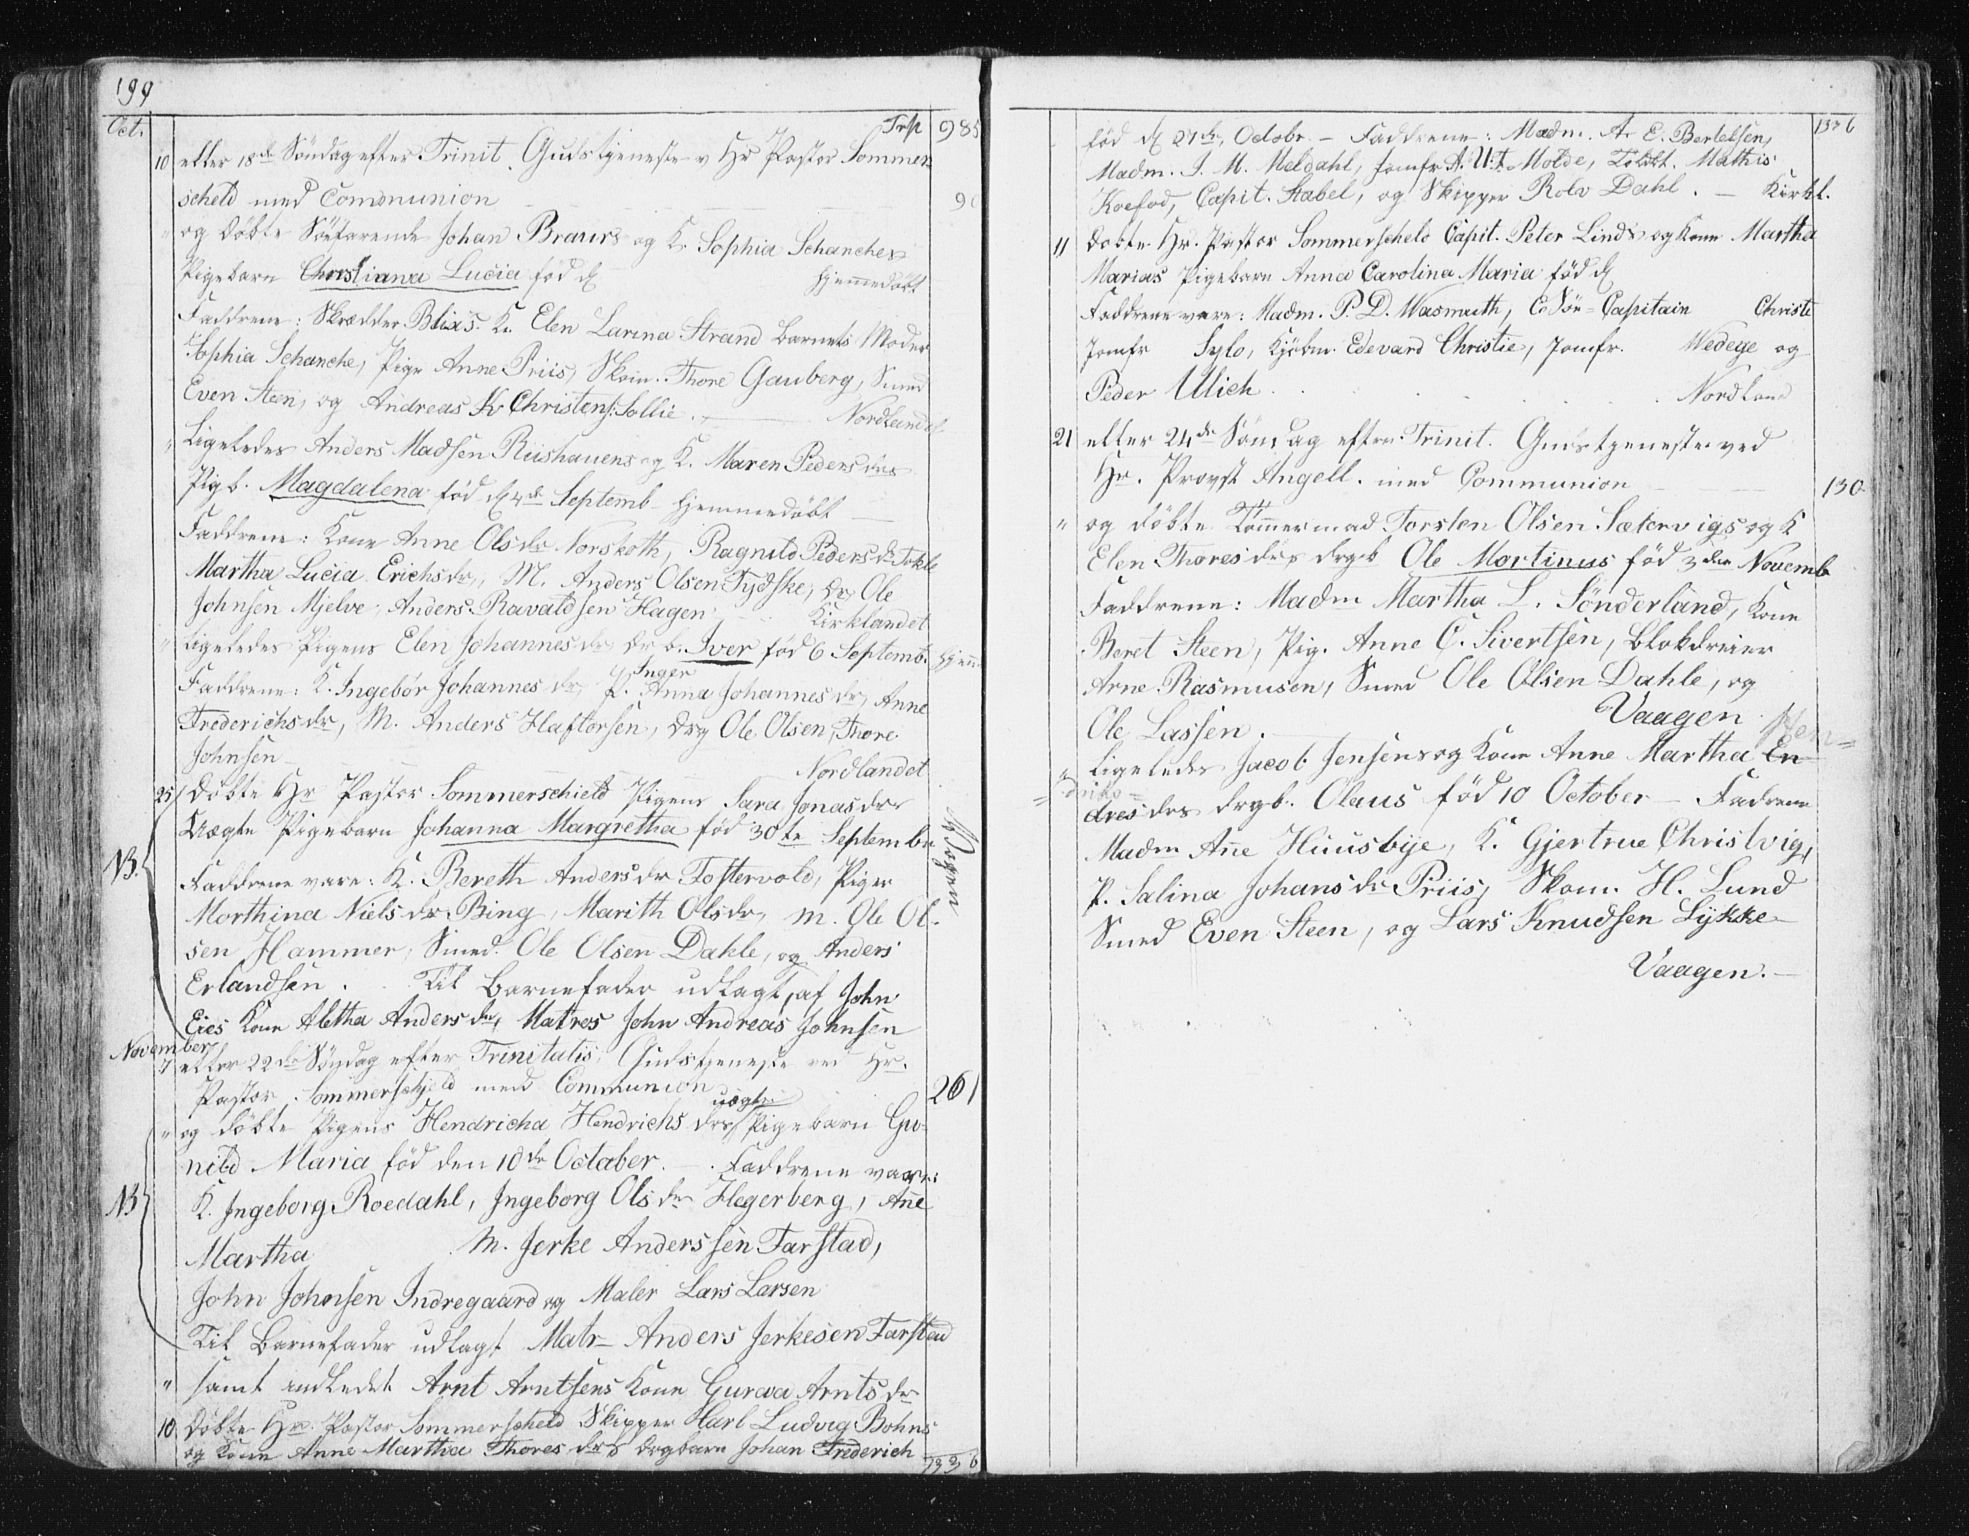 199
Oct. Trsp 985
10 efter 18de Söndag efter Trinit. Gudstjeneste v Hr Pastor Sommer
scheld med Communion 90
" og döbte Söefarende Johan Braurs og K. Sophia Schanches
Pigebarn Christiana Lucia föd d hjemmedöbt
Faddrene: Skrædder Blixs K. Elen Larina Strand barnets Moder
Sophia Schanche, Pige Anne Priis, Skom. Thore Gauberg, Smed
Even Steen, og Andreas Christens: Sollie. Nordlandet
" Ligeledes Anders Madsen Riishauens og K. Maren Pedersdrs
Pigb. Magdalena föd d 4de Septemb hjemmedöbt
Faddrene: Kone Anne Olsdr Norskoth, Ragnild Pedersdr Tokle
Martha Lucia Erichsdr, M. Anders Olsen Tydske, Drg Ole
Johnsen Mjelve, Anders Ravaldsen Hagen Kirklandet
" Ligeledes Pigens Elen Johannesdr dr b. Iver föd 6 Septemb. hjem
Inger
Faddrene: K. Ingebör Johannesdr, P. Anna Johannesdr, Anne
Frederichsdr, M. Anders Haftorsen, Drg Ole Olsen, Thore
Johnsen Nordlandet
25 döbte Hr Pastor Sommerschield Pigens Sara Jonasdr
Uægte Pigebarn Johanna Margretha föd 30te September
Vogen
NB. Faddrene vare: K. Bereth Andersdr Fostervold, Piger
Morthina Nielsdr Bing, Marith Olsdr, M. Ole Ol-
sen Hammer, Smed. Ole Olsen Dahle, og Anders
Erlandsen. Til Barnefader udlagt, af John
Eies Kone Aletha Andersdr, Matros John Andreas Johnsen
November
7 efter 22de Söndag efter Trinitatis Gudstjeneste ved Hr.
Pastor Sommerschield med Communion 261
uægte
" og döbte Pigens Hendricha Hendrichsdrs Pigebarn Gu-
nild Maria föd den 10de October. Faddrene vare:
NB K. Ingeborg Roedahl, Ingeborg Olsdr Hegerberg, Añe
Martha M. Jerke Anderssen Farstad,
John Johnsen Indregaard og Maler Lars Larsen
Til Barnefader udlagt Matr Anders Jerkesen Farstad
" samt indledet Arnt Arntsens Kone Gurava Arntsdr
10 döbte Hr. Pastor Sommerscheld Skipper Karl Ludvig Bohns
og Kone Anne Martha Thoresdrs drgbarn Johan Frederich
1336
1336
föd d 27de Octobr. Faddrene: Madm. A. E. Bertelsen,
Madm. I. M. Meldahl, Jomfr A. U. F. Molde, Toldbt. Mathis
Koefod, Capit. Stabel, og Skipper Rolv Dahl. Kirkl.
11 döbte Hr. Pastor Sommerscheld Capit. Peter Linds og Kone Martha
Marias Pigebarn Anna Carolina Maria föd d
Faddrene vare: Madm. P. D. Wasmuth, Capitain Christi
Jomfr Sylo, Kjöbm. Edevard Christie, Jomfr. Wedege og
Peder Ulich. Nordland
21 efter 24de Söndag efter Trinit. Gudstjeneste ved
Hr. Provst Angell. med Communion 130
" og döbte Tömmermad Torsten Olsen Sætervigs og K
Elen Thoresdrs drgb Ole Mortinus föd 3die Novemb
Faddrene: Madm Martha L. Sönderland, Kone
Beret Steen, Pig. Anne C. Sivertsen, Blokdreier
Arne Rasmusen, Smed Ole Olsen Dahle, og
Ole Lassen. Vaagen
Hen=
" Ligeledes Jacob Jensens og Kone Anne Martha En
=driks=
dresdrs drgb. Olaus föd 10 October. Fadrene
Madm Añe Huusbye, K. Gjertrue Christvig,
P. Salina Johansdr Priis, Skom. H. Lund
Smed Even Steen, og Lars Knudsen Lykke
Vaagen.